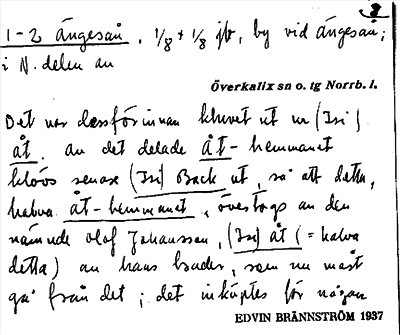 8
1-2 ängesån, 1/8 + 1/8 jb, by vid ängesån;
i N. delen av
Överkalix sn o. tg Norrb. l.
Det var dessförinnan kluvet ut ur (Isi)
åt. av det delade åt-hemmanet
klövs senare (Isi) Back ut, så att detta,
halva åt-hemmanet, övertogs av den
nämnde Olof Johansson, (Isi) åt (= halva
detta) av hans broder, som nu måst
gå från det; det inköptes för någon
EDVIN BRÄNNSTRÖM 1937